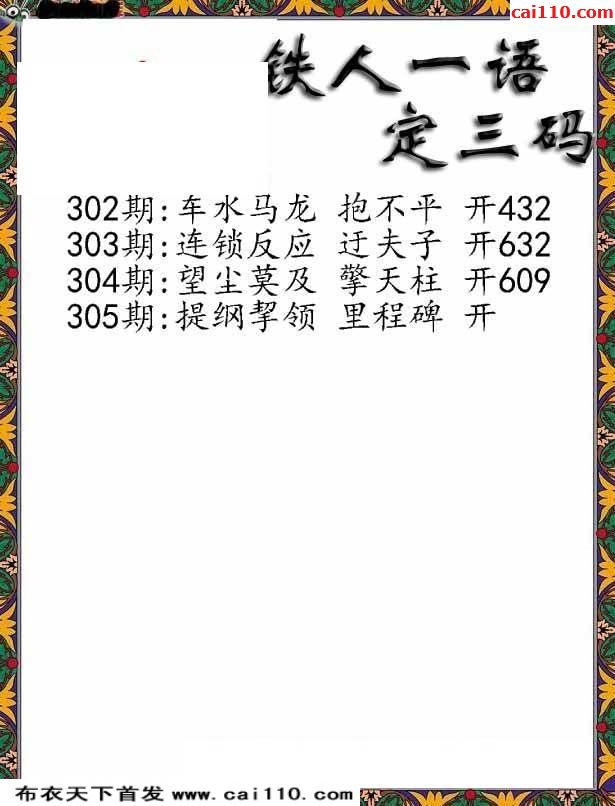 cai110.com
铁人一语
定三码
302期:车水马龙 抱不平 开432
303期:连锁反应 迂夫子 开632
304期:望尘莫及 擎天柱 开609
305期:提纲挈领 里程碑 开
布衣天下首发 www.cai110.com